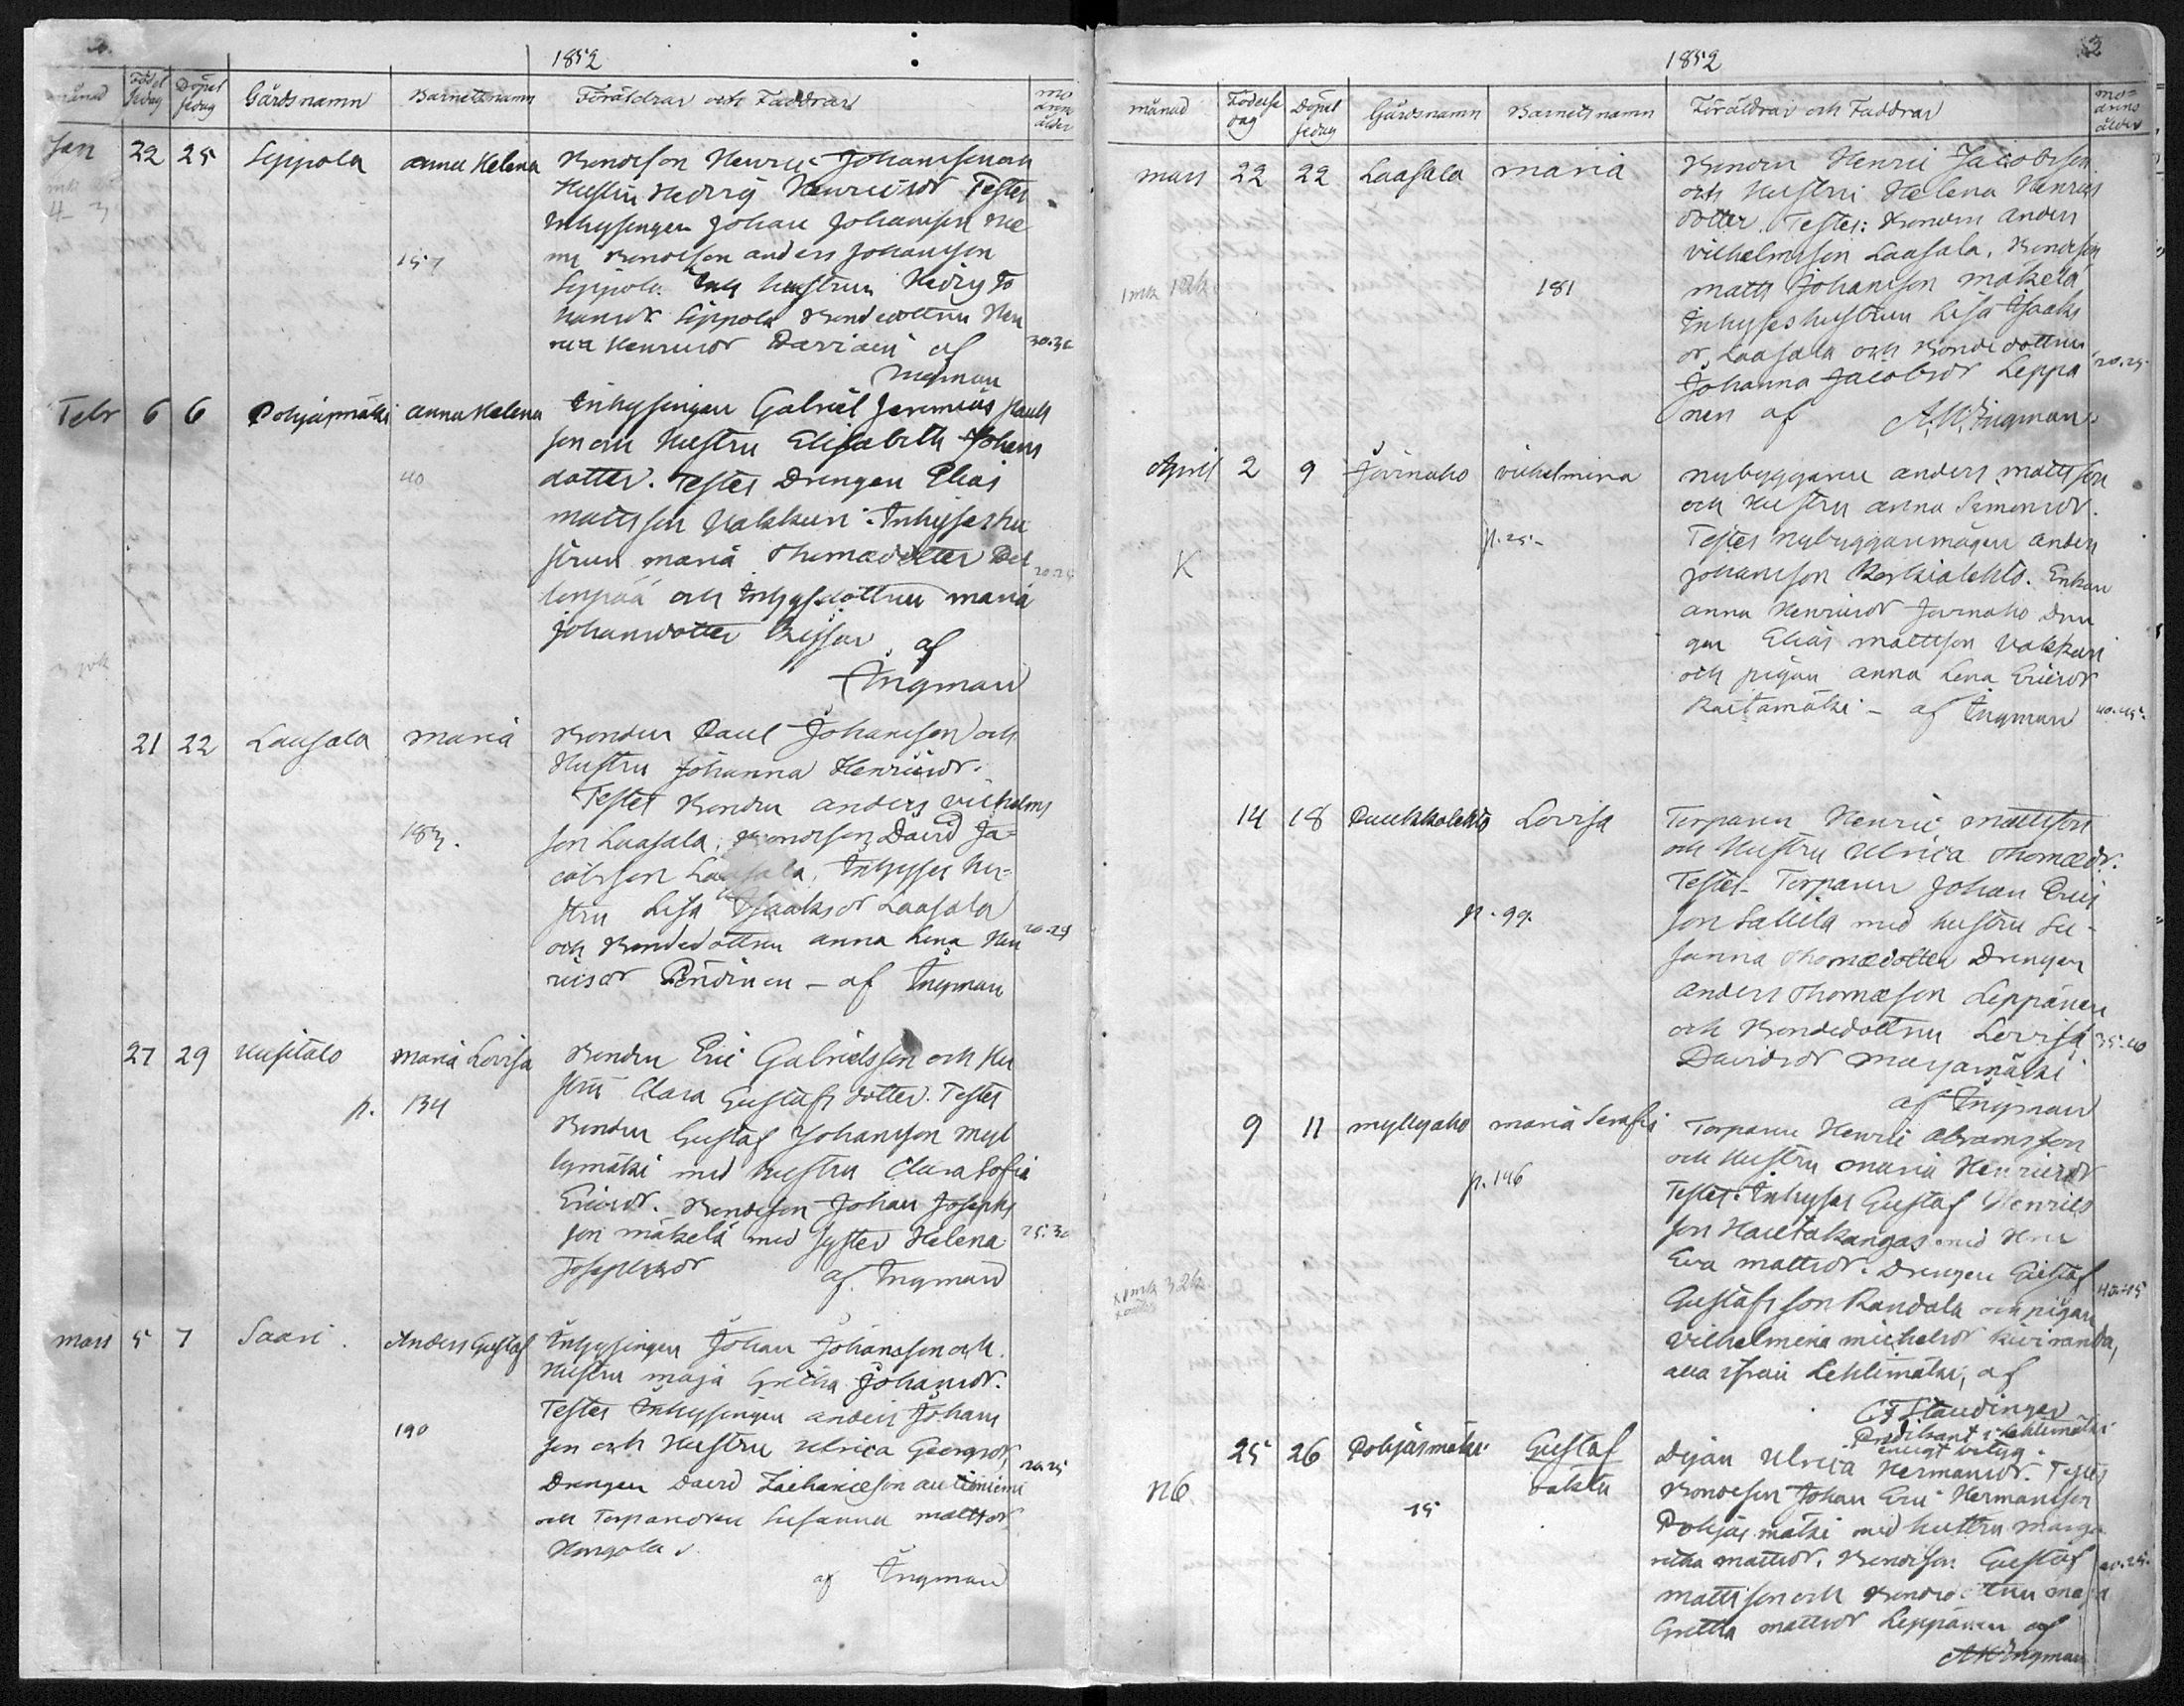 2.
1852
månad Födelsedag Döpelsedag Gårdsnamn Barnetsnamn Föräldrar och Faddrar modrens ålder
Jan 22 25 Leppola anna Helena Bondeson Henric Johansson och
Hustru Hedvig Henricsdr Testes
Inhysingen Johan Johansson
Bondeson anders Johansson
157
Leppola hustrun Hedvig Jo
hansdr Leppola Bondedottern Hen
rica Henricsdr af 30.35
Ingman
Febr 6 6 Pohjasmäki anna Helena Inhysingen Gabriel Jeremias
son och Hustru Elisabeth Johans
40
dotter. Testes Drengen Elias
mattsson Vakkuri. Inhyses hu
strun maria Thomædotter
20.25
och Inhysdottren maria
Johansdotter af
Ingman
21 22 Laasala maria Bonden Paul Johansson och
Hustru Johanna Henricsdr.
Testes Bonden anders vilhelms
183.
son Laasala, Bondeson David Ja=
cobsson Laasala, Inhyses Hu=
stru Lisa Isaaksdr Laasala
20.25
och Bondedottren anna Lena Hen
ricsdr Pöndinen - af Ingman
27 29 Uusitalo maria Lovisa Bonden Eric Gabrielsson och Hu
stru Clara Gustafsdotter. Testes
p. 134
Bonden Gustaf Johansson Myl
lymäki med hustru Clara Sofia
Ericsdr. Bondeson Johan Josephs
son mäkelä med syster Helena 25.30
Josephsdr af Ingman
mars 5 7 Saari. Anders Gustaf Inhysingen Johan Johansson och
Hustru maja Gretha Johansdr.
Testes Inhysingen anders Johans
190
son och Hustru Ulrica Georgsdr,
20.25
Drengen David Zachariæson autioniemi
och Torpardren Susanna mattsdr
Hangola.
af Ingman
3
1852
månad Födelsedag Döpelsedag Gårdsnamn Barnetsnamn Föräldrar och Faddrar modrens ålder
mars 22 22 Laasala maria Bonden Henric Jacobsson
och Hustru Helena Henrics
dotter. Testes: Bonden anders
vilhelmsson Laasala, Bondeson
181
matts Johansson mäkelä
Inhyses hustrun Lisa Isaaks
dr, Laasala och Bondedottren
20.25.
Johanna Jacobsdr Leppä
nen af A.W. Ingman.
April 2 9 Järvinaho vilhelmina nybyggaren anders mattsson
och Hustru anna Simonsdr.
p. 25-
Testes nybyggaremågen anders
K
Johansson Koskialehto. Enkan
anna Henricsdr Järvinaho dren
gen Elias mattsson Vakkuri
och pigan anna Lena Ericsdr
Raitamäki - af Ingman 40.45.
14 18 Paukkolehto Lovisa Torparen Henric mattsson
och Hustru Ulrica Thomædr.
Testes- Torparen Johan Erics
p. 99.
son Sallila med hustru Su-
sanna Thomædotter Drengen
anders Thomæson Leppänen
och Bondedottren Lovisa 35.40
Davidsdr Marjamäki
af Ingman
9 11 myllyaho maria Serafi Torparen Henric abramsson
och Hustru maria Henricsdr
p. 146
Testes: Inhyses Gustaf Henrics
son Hautakangas med Hru
Eva mattsdr. Drengen Gustaf
40.45
Gustafsson Randala och pigan
vilhelmina michelsdr kiviranta,
alla ifrån Lehtimäki, af
C F Staudinger
Predikant i Lehtimäki
enligt betyg.
25 26 Pohjasmäki Gustaf pigan Ulrica Hermansdr. Testes
oäkta
N6
15
Bondeson Johan Eric Hermansson
Pohjasmäki med hustru marga
retha mattsdr. Bondeson Gustaf
20.25.
mattsson och Bondedottren maja
Gretha mattsdr Leppänen af
AW Ingman